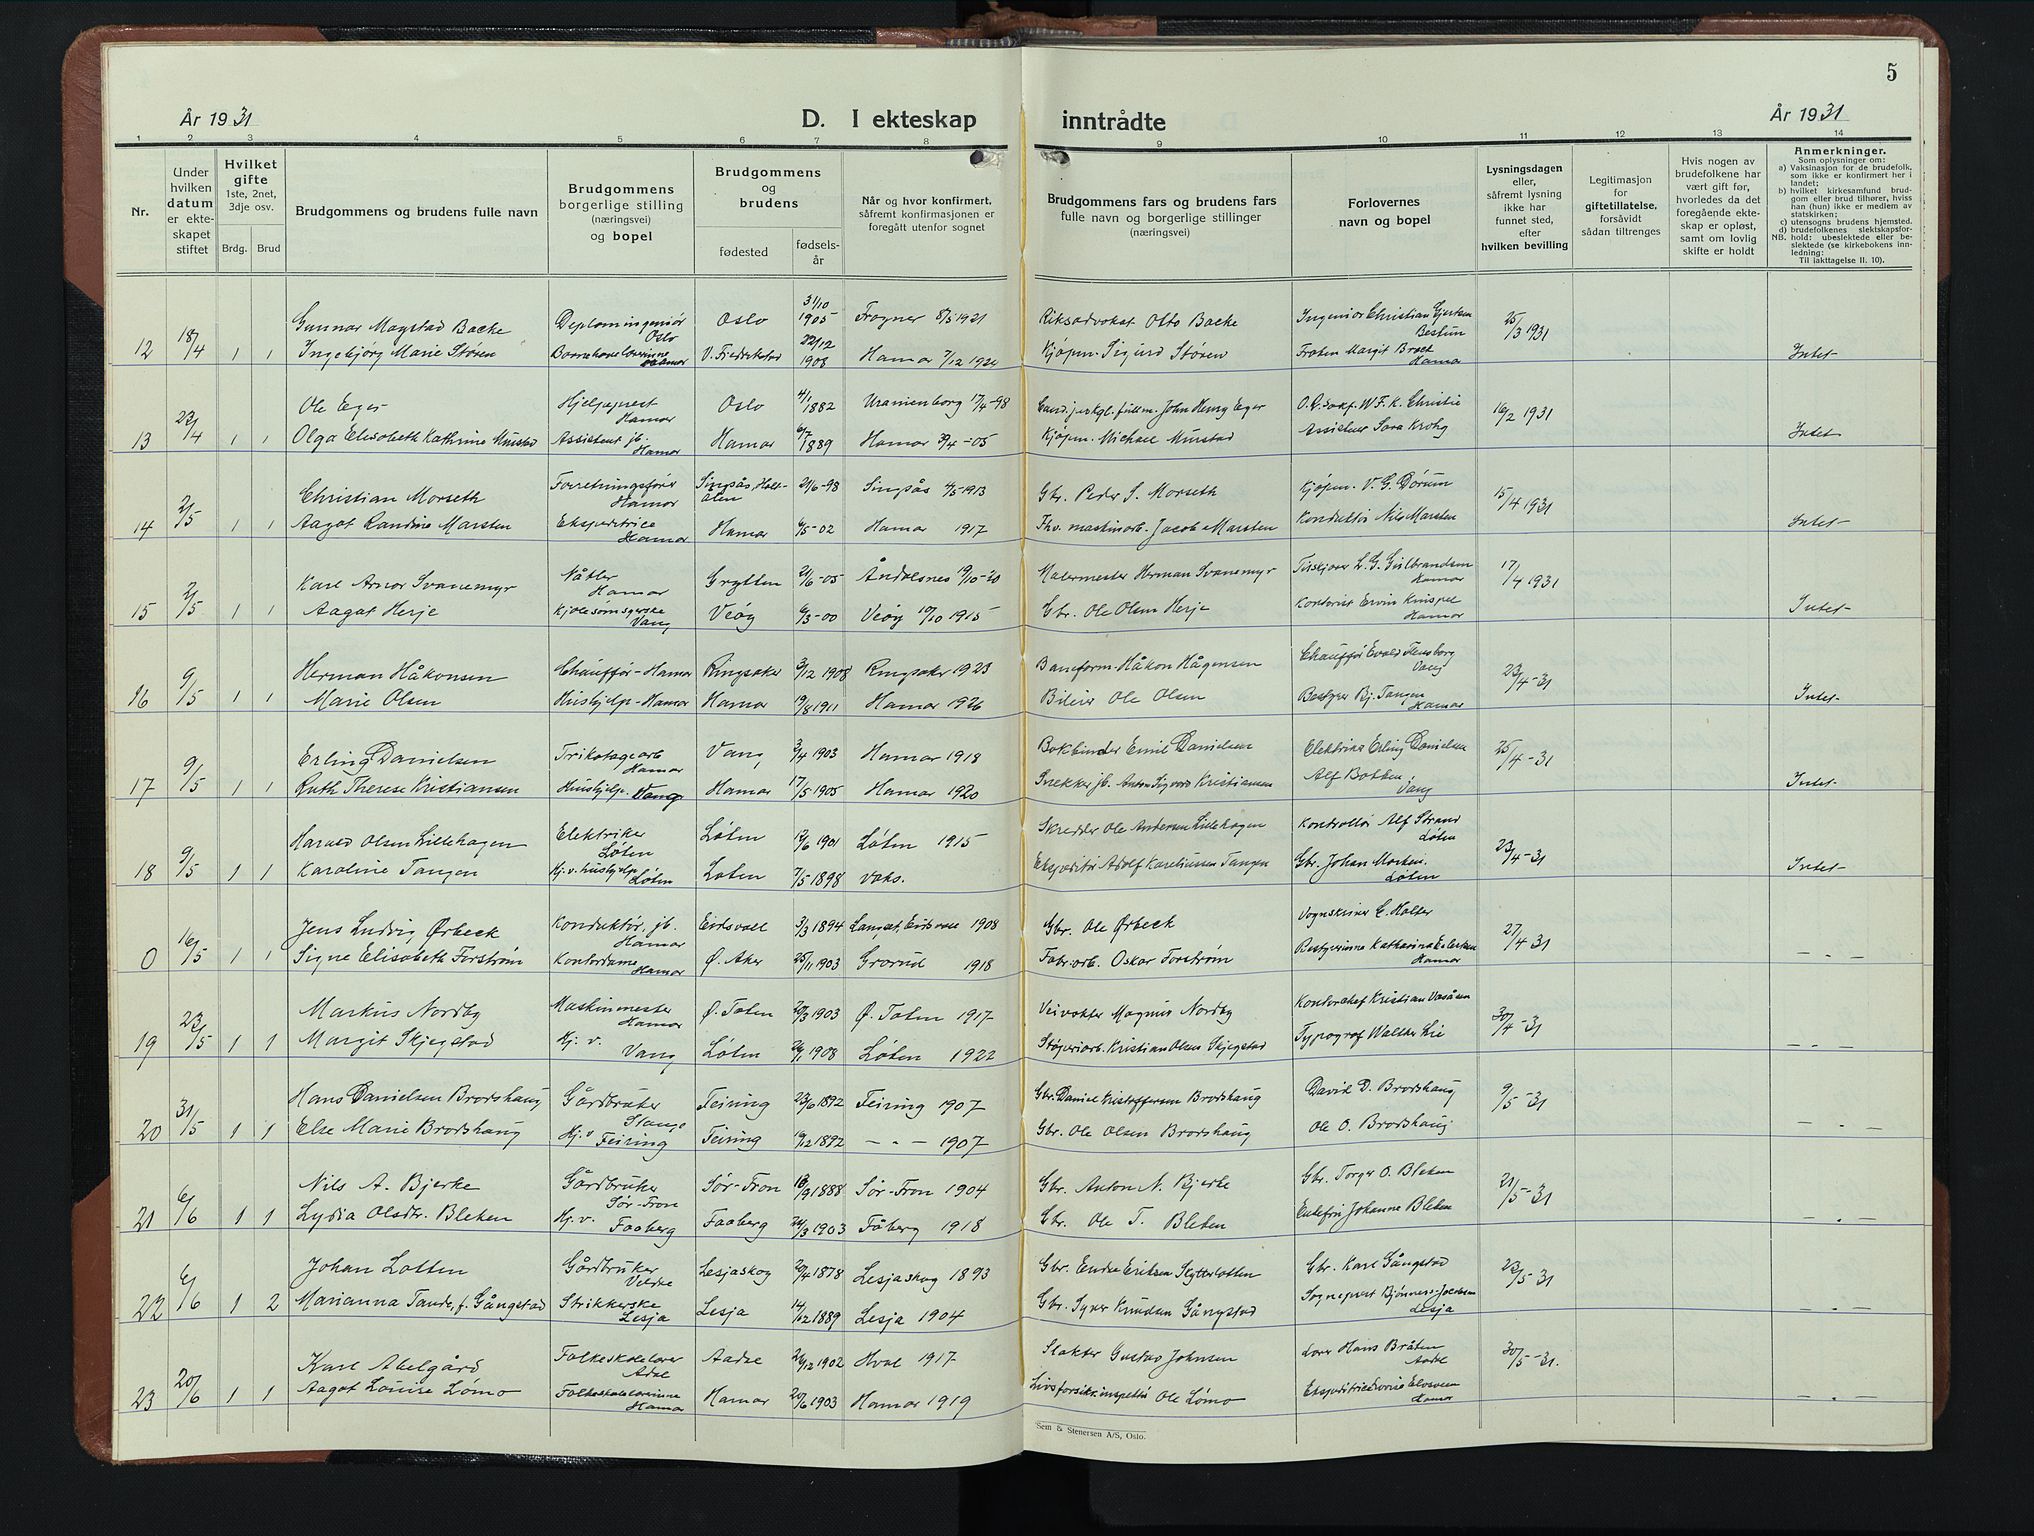 5
År 1931
D. I ekteskap inntrådte
År 1931
1 2 3 4 5 6 7 8 9 10 11 12 13 14
Nr.
Under hvilken datum er ekteskapet stiftet
Hvilket gifte
1ste, 2net, 3dje osv.
Brdg. Brud
Brudgommens og brudens fulle navn
Brudgommens borgerlige stilling (næringsvei) og bopel
Brudgommens og brudens
fødested
fødselsår
Når og hvor konfirmert, såfremt konfirmasjonen er foregått utenfor sognet
Brudgommens fars og brudens fars fulle navn og borgerlige stillinger (næringsvei)
Forlovernes navn og bopel
Lysningsdagen eller, såfremt lysning ikke har funnet sted, efter hvilken bevilling
Legitimasjon for giftetillatelse, forsåvidt sådan tiltrenges
Hvis nogen av brudefolkene har vært gift før, hvorledes da det foregående ekteskap er opløst, samt om lovlig skifte er holdt
Anmerkninger.
Som oplysninger om:
a) Vaksinasjon for de brudefolk, som ikke er konfirmert her i landet;
b) hvilket kirkesamfund brudgom eller brud tilhører, hviss han (hun) ikke er medlem av statskirken;
c) utensogns brudens hjemsted.
d) brudefolkenes slektskapsforhold: ubeslektede eller beslektede (se kirkebokens innledning:
NB.
Til iakttagelse II. 10).
12 18/4 1 1 Gunnar Magstad Backe Diplomingeniør Oslo Oslo 31/10 1905 Frogner 8/5 1921 Riksadvokat Otto Backe Ingeniør Christian Gjertsen Bestun 25/3 1931
Ingebjørg Marie Støren Barnehaveloverinne Hamar V. Fredrikstad 22/12 1908 Hamar 7/12 1924 Kjøpm. Sigurd Støren Frøken Margit Brock Hamar Intet
13 23/4 1 1 Ole Eger Hjelpeprest Hamar Oslo 4/1 1882 Uranienborg 17/4-98 Cand. jur. kgl. fullm. John Henry Eger O.r.sakf. W.F.K. Christie 16/2 1931
Olga Elisabeth Kathrine Mustad Assistent jb. Hamar Hamar 6/7 1889 Hamar 30/4-05 Kjøpm. Michael Mustad Assistent Sara Krohg Intet
14 2/5 1 1 Christian Morseth Forretningsfører Hamar Singsås, Holtålen 21/6-98 Singsås 4/5-1913 Gbr. Peder S. Morseth Kjøpm. V.G. Dørum 15/4 1931
Aagot Randine Marsten Ekspeditrice Hamar Hamar 6/5-02 Hamar 1917 Fhv. maskinarb. Jacob Marsten Konduktør Nils Marsten Intet
15 2/5 1 1 Karl Arnor Svanemyr Nåtler Hamar Grytten 21/6-05 Åndalsnes 19/10-20 Malermester Herman Svanemyr L.G. Gulbrandsen Hamar 17/4 1931
Aagot Herje Kjolesømsyerske Vang Veøy 6/3-00 Veøy 10/10 1915 Gbr. Ole Olsen Herje Kontorist Ervin Knispel Hamar Intet
16 9/5 1 1 Herman Håkonsen Chauffør-Hamar Ringsaker 3/12 1908 Ringsaker 1923 Baneform. Håkon Hågensen Chauffør Evald Vang 23/4-31
Marie Olsen Hushjelp-Hamar Hamar 19/8 1911 Hamar 1926 Bileier Ole Olsen Bestyrer Bj. Tangen Hamar Intet
17 9/5 1 1 Erling Danielsen Trikotagearb Hamar Vang 3/4 1903 Hamar 1918 Bokbinder Emil Danielsen Elektriker Erling Danielsen 25/4-31
Ruth Therese Kristiansen Hushjelp. Vang Hamar 17/5 1905 Hamar 1920 Snekker jb. Anton Sigvard Kristiansen Alf Bakken Vang Intet
18 9/5 1 1 Harald Olsen Lillehagen Elektriker Løten Løten 12/6 1901 Løten 1915 Skredder Ole Andersen Lillehagen Kontrollør Alf Strand Løten 23/4-31
Karoline Tangen Hj. v. hushjelp Løten Løten 7/5 1898 voks. Ekspeditør Adolf Kareliussen Tangen Gbr. Johan Morken. Løten Intet
0 16/5 1 1 Jens Ludvig Ørbeck Konduktør, jb. Hamar Eidsvoll 3/3 1894 Langset, Eidsvoll 1908 Gbr. Ole Ørbeck Vognskriver E. Holter 27/4 31
Signe Elisabeth Forstrøm Kontordame Hamar Ø. Aker 25/11 1903 Grorud 1918 Fabr.arb. Oskar Forstrøm Bestyrerinne Katharina Hamar - " -
19 23/5 1 1 Markus Nordby Maskinmester Hamar Ø. Toten 20/3 1903 Ø. Toten 1917 Veivokter Magnus Nordby Kontorchef Kristian Vasåsen 30/4-31
Margit Skjegstad Hj. v. Vang Løten 26/1 1908 Løten 1922 Støperiarb. Kristian Olsen Skjegstad Typograf Walther Lie - " -
20 31/5 1 1 Hans Danielsen Brodshaug Gårdbruker Stange Feiring 23/6 1892 Feiring 1907 Gbr. Daniel Kristoffersen Brodshaug David D. Brodshaug 9/5-31
Else Marie Brodshaug Hj. v Feiring Feiring 19/12 1892 - " - 1907 Gbr. Ole Olsen Brodshaug Ole O. Brodshaug - " -
21 6/6 1 1 Nils A. Bjerke Gårdbruker Sør-Fron Sør-Fron 18/9 1888 Sør-Fron 1904 Gbr. Anton N. Bjerke Gbr. Torger O. Bleken 21/5-31
Lydia Olsdtr. Bleken Hj. v. Faaberg Faaberg 26/3 1903 Fåberg 1918 Gbr. Ole T. Bleken Enkefru Johanne Bleken - " -
22 6/6 1 2 Johan Lotten Gårdbruker Veldre Lesjaskog 20/4 1878 Lesjaskog 1893 Gbr. Endre Eriksen Slytterlotten Gbr. Karl Gångstad 23/5-31
Marianna Tande, f. Gångstad Strikkerske Lesja Lesja 14/12 1889 Lesja 1904 Gbr. Syver Knudsen Gångstad Sogneprest Bjønnes-Jacobsen Lesja - " -
23 20/6 1 1 Karl Abelgård Folkeskolelærer Aadal Aadal 26/12 1902 Hval 1917 Slakter Gustav Johnsen Lærer Hans Bråten Aadal 30/5-31.
Aagot Louise Lømo Folkeskolelærerinne Hamar Hamar 20/6 1903 Hamar 1919 Livsforsikr.inspektør Ole Lømo Hamar - " -
Sem & Stenersen A/S, Oslo.